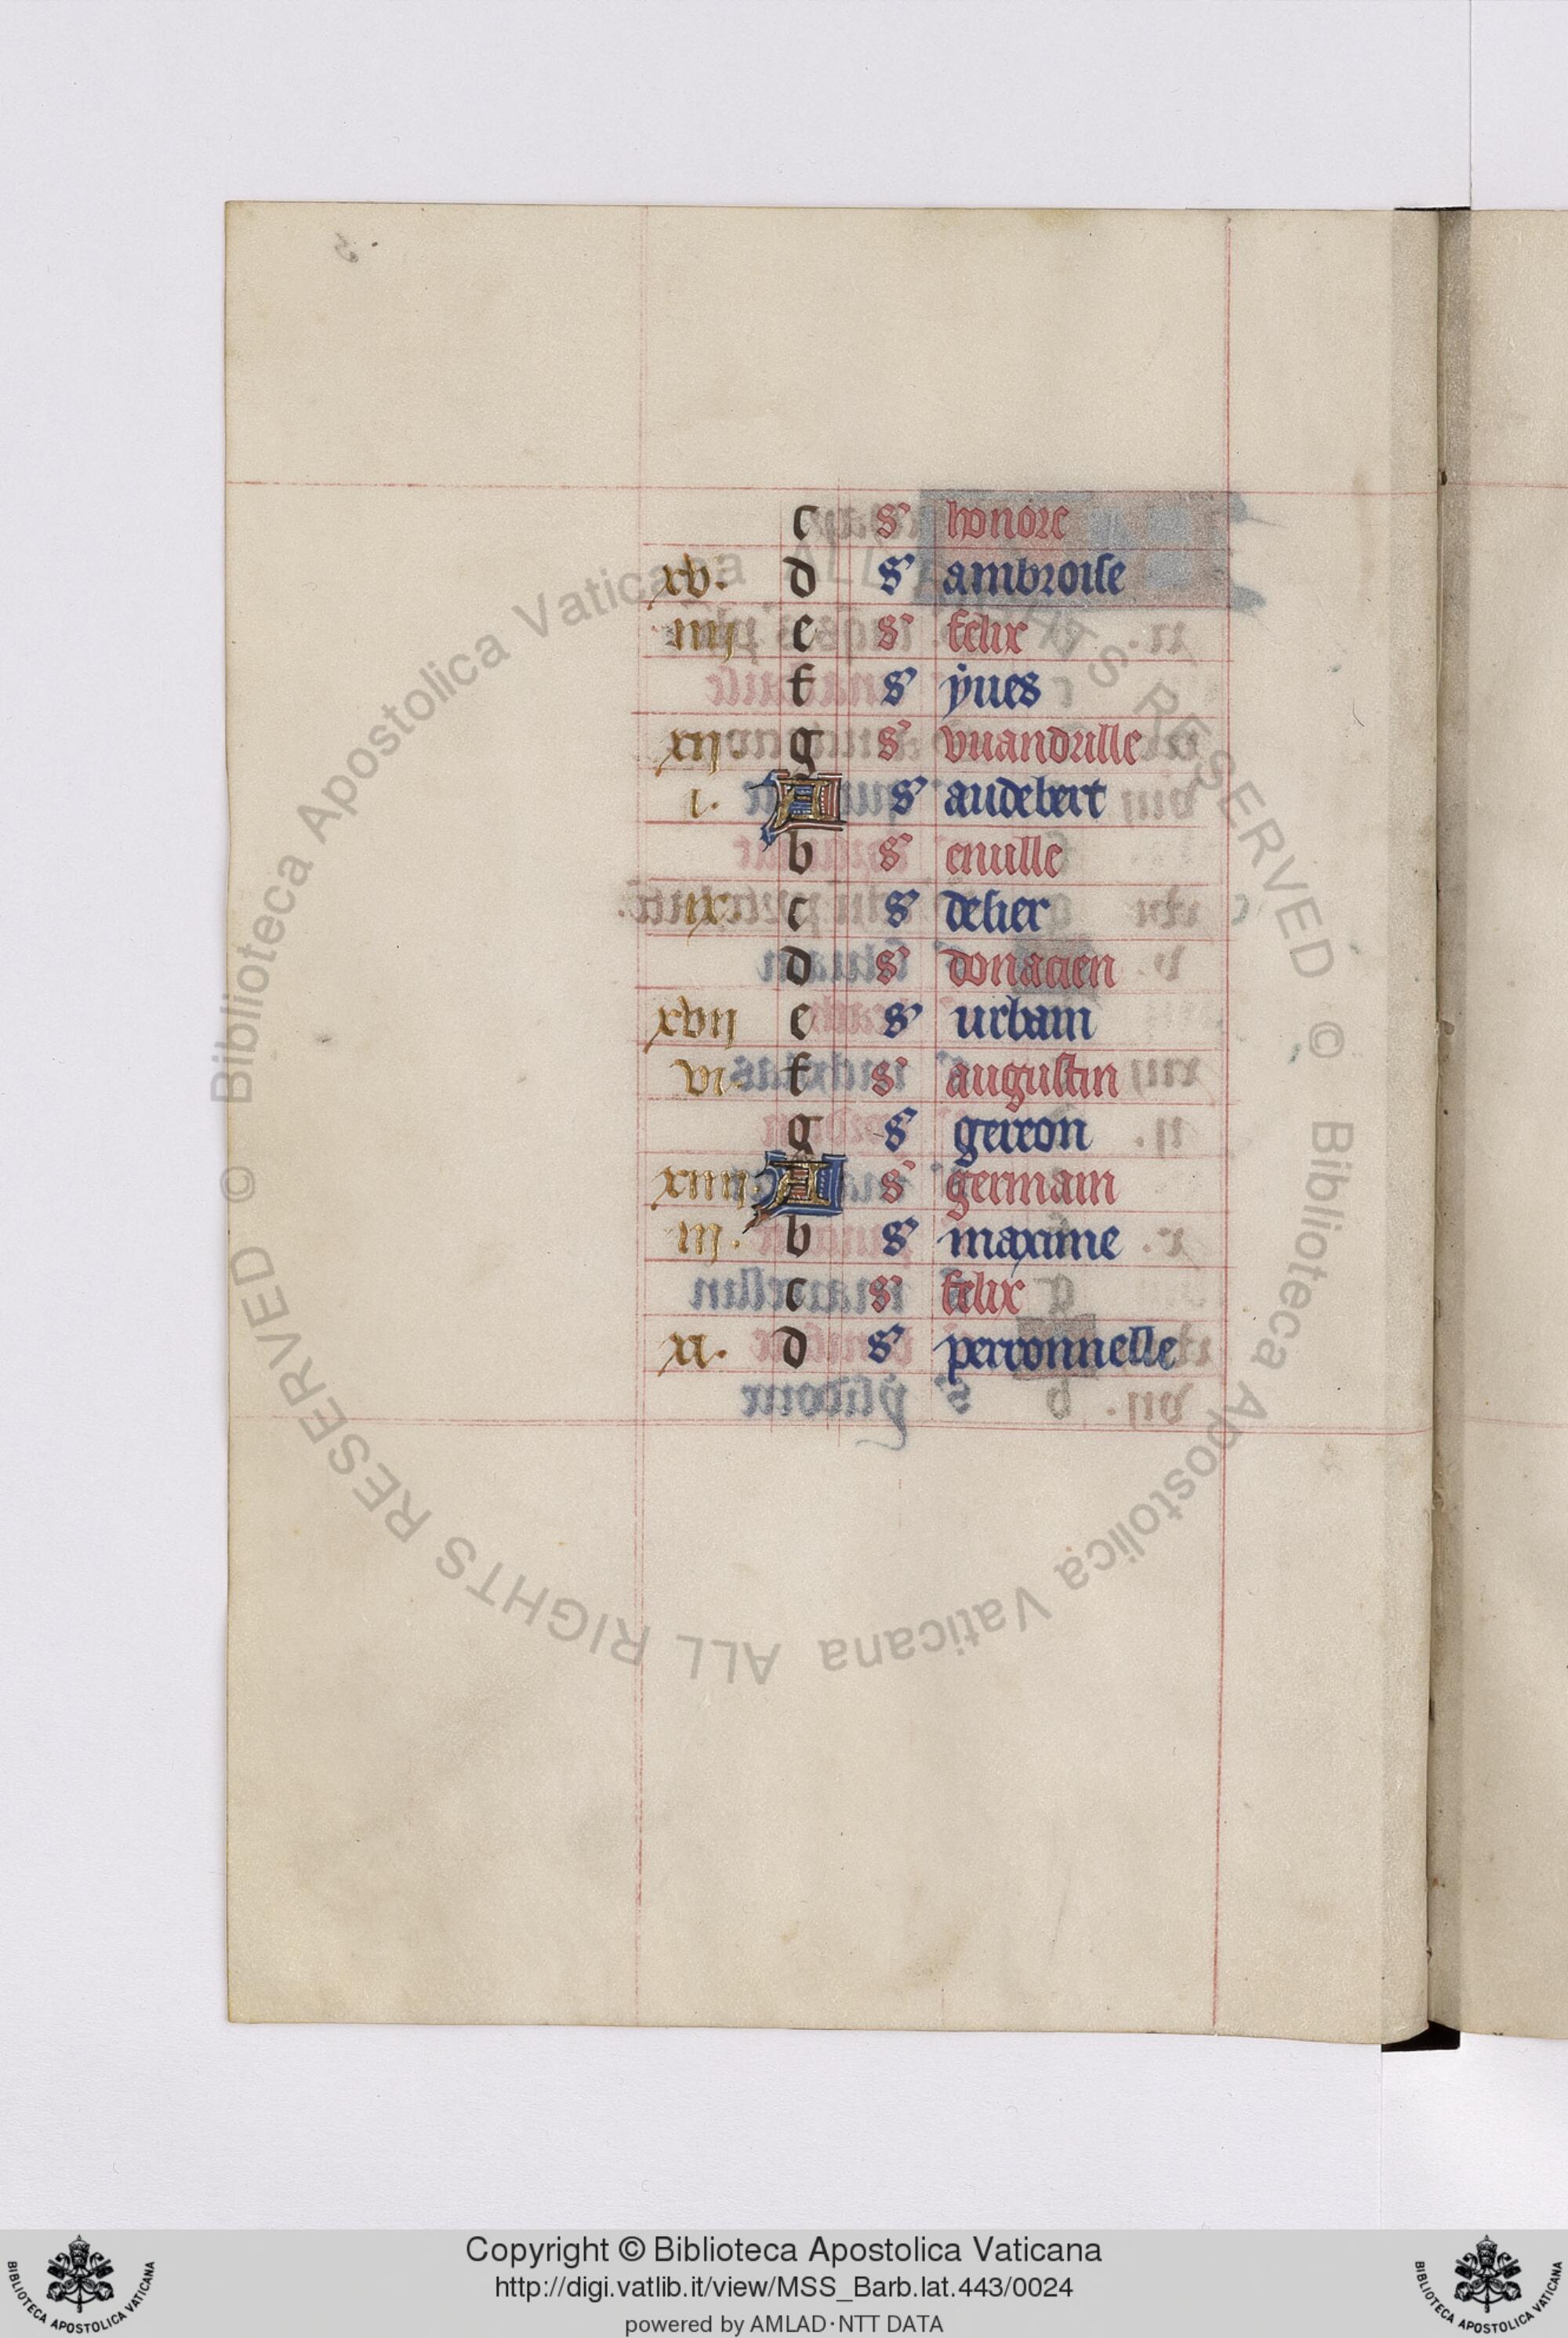 c s honore
xv. d s ambroise
iiij e s felix
f s ẏues
xij. g s vuandrille
i. A s audebert
b s enuille
ix c s delier
d s donacien
xvij e s urbain
vi. f s augustin
g s gereon
xiiij. A s germain
iij. b s maxime
c s felix
xi. d s perronnelle
Biblioteca Apostolica Vaticana ALL RIGHTS RESERVED © Biblioteca Apostolica Vaticana ALL RIGHTS RESERVED ©
Copyright © Biblioteca Apostolica Vaticana
http://digi.vatlib.it/view/MSS_Barb.lat.443/0024
powered by AMLAD·NTT DATA
BIBLIOTECA APOSTOLICA VATICANA
BIBLIOTECA APOSTOLICA VATICANA